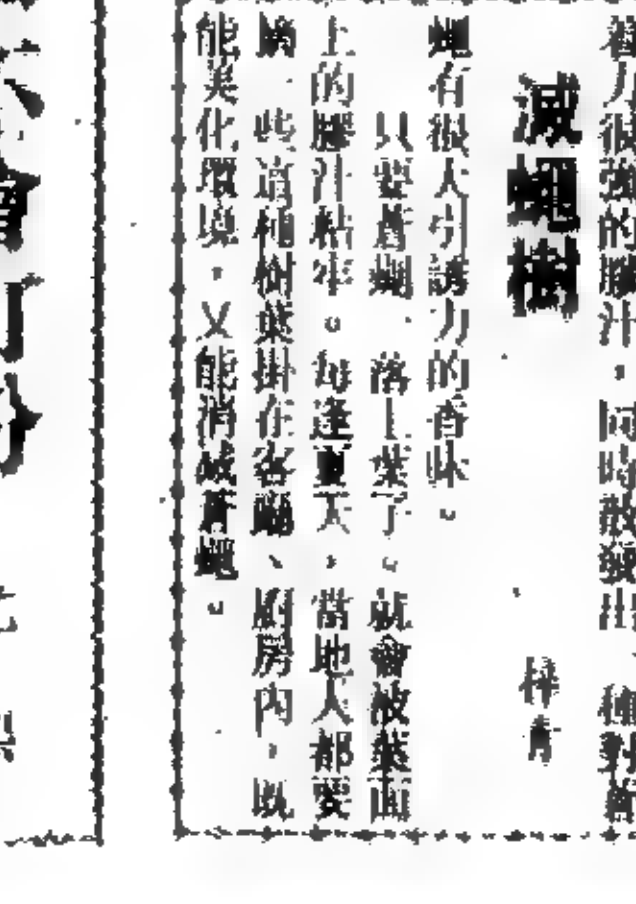 着力很強的膠汁，同時散發出一種對蒼
滅蠅樹
梓青
蠅有很大引誘力的香味。
只要蒼蠅一落上葉了。就會被葉面
上的膠汁粘牢。每逢夏天，當地人都要
摘一些這種樹葉掛在客廳、廚房內，既
能美化環境，又能消滅蒼蠅。